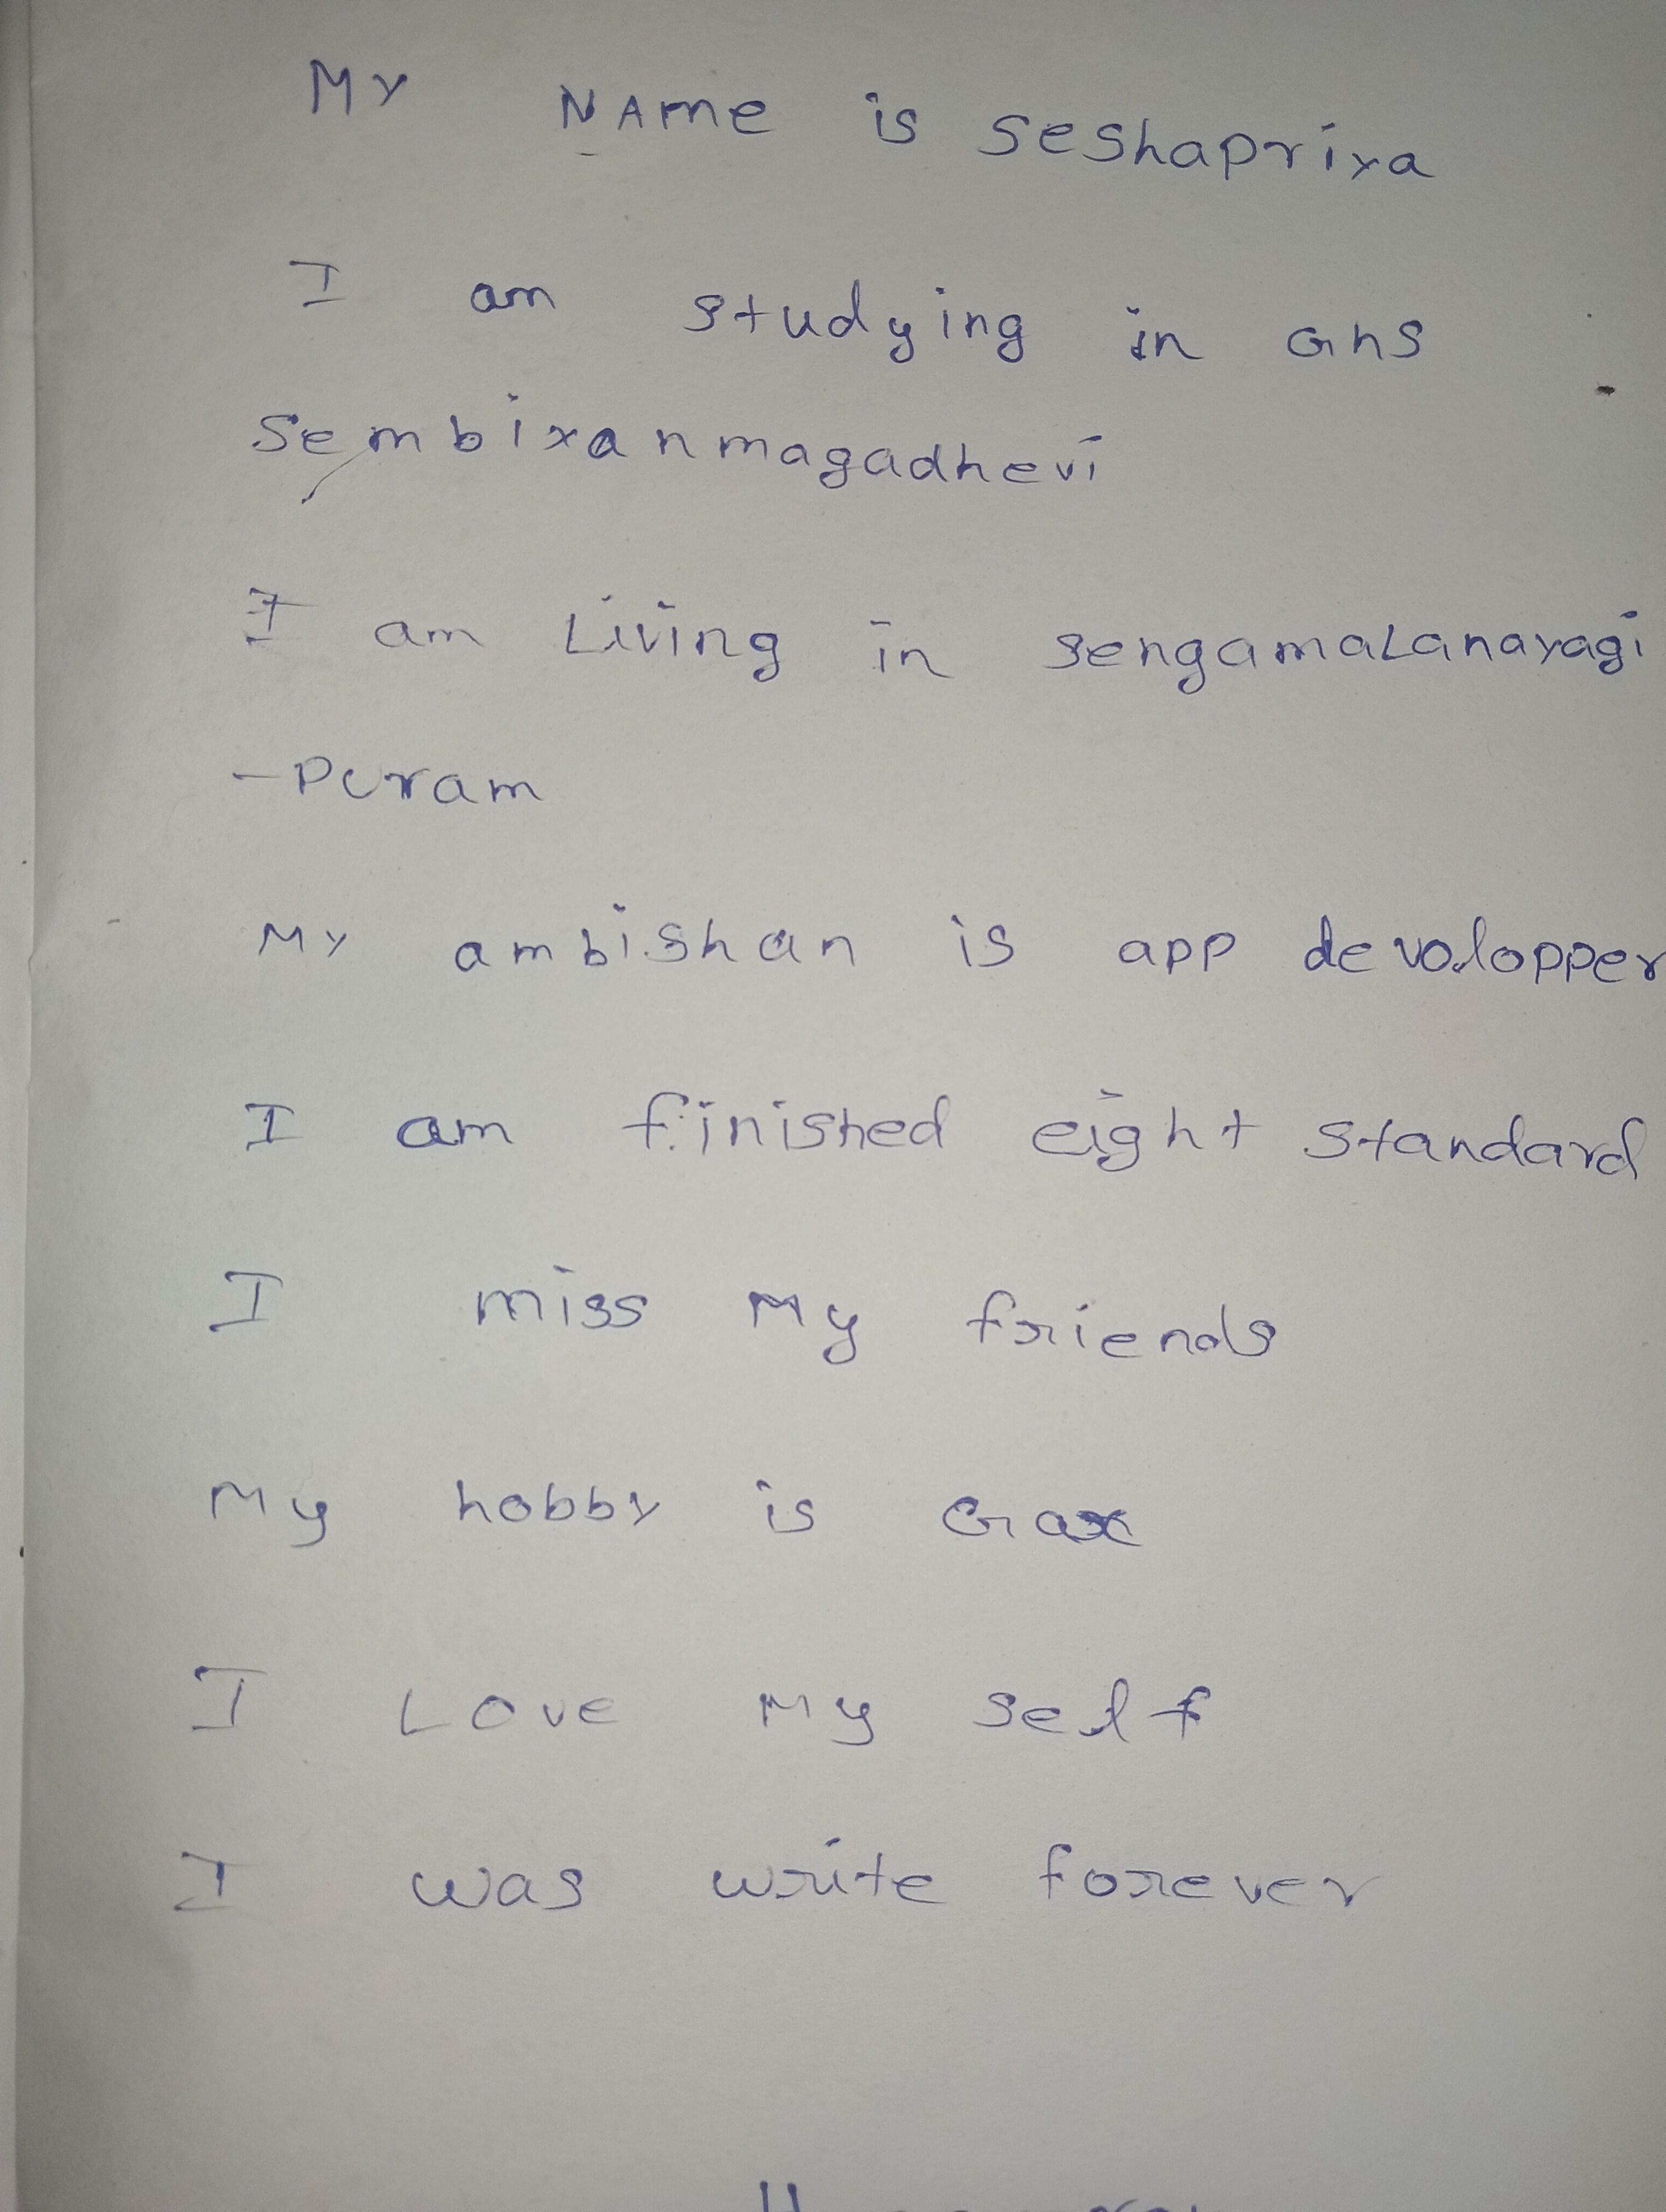 MY NAME is seshapriya
I am studying in GHS
sembiyanmagadhevi
I am Living in sengamaLanayagi
-puram
MY ambishan is app devalopper
I am finished eight standard
I miss My friends
My hobby is
I Love My self
I was write forever